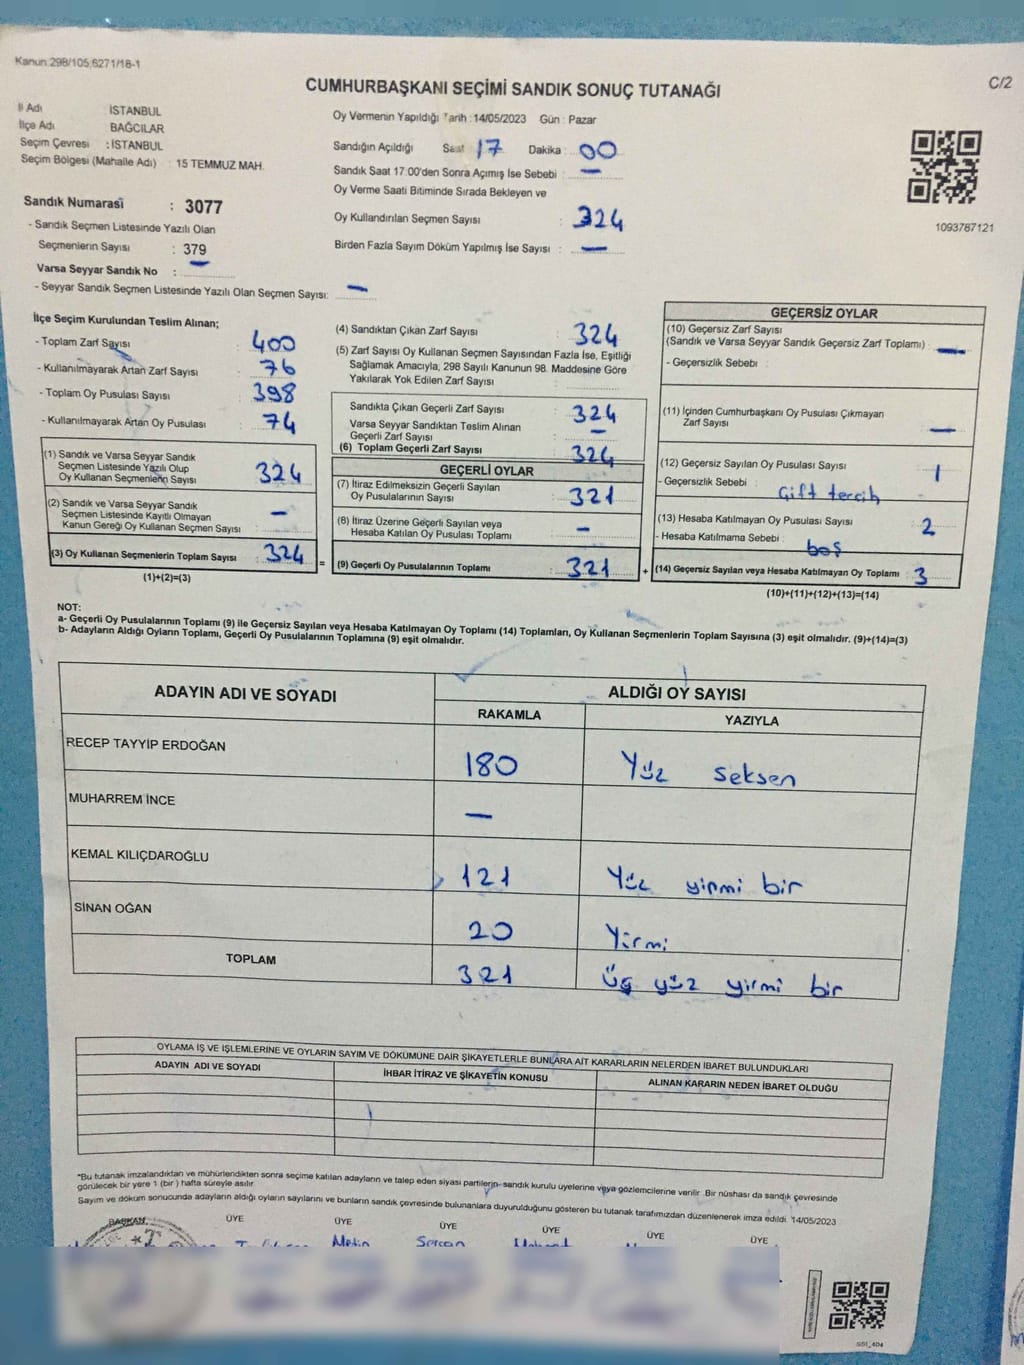 Kanun:298/105,6271/18-1
CUMHURBAŞKANI SEÇİMİ SANDIK SONUÇ TUTANAĞI
C/2
İl Adı İSTANBUL
İlçe Adı BAĞCILAR
Seçim Çevresi : İSTANBUL
Seçim Bölgesi (Mahalle Adı) : 15 TEMMUZ MAH.
Sandık Numarası : 3077
- Sandık Seçmen Listesinde Yazılı Olan
Seçmenlerin Sayısı : 379
Varsa Seyyar Sandık No : —
- Seyyar Sandık Seçmen Listesinde Yazılı Olan Seçmen Sayısı: —
Oy Vermenin Yapıldığı Tarih :14/05/2023 Gün : Pazar
Sandığın Açıldığı Saat 17 Dakika : 00
Sandık Saat 17:00'den Sonra Açımış İse Sebebi : —
Oy Verme Saati Bitiminde Sırada Bekleyen ve
Oy Kullandırılan Seçmen Sayısı : 324
Birden Fazla Sayım Döküm Yapılmış İse Sayısı : —
1093787121
İlçe Seçim Kurulundan Teslim Alınan;
- Toplam Zarf Sayısı : 400
- Kullanılmayarak Artan Zarf Sayısı : 76
- Toplam Oy Pusulası Sayısı : 398
- Kullanılmayarak Artan Oy Pusulası : 74
(1) Sandık ve Varsa Seyyar Sandık
Seçmen Listesinde Yazılı Olup
Oy Kullanan Seçmenlerin Sayısı : 324
(2) Sandık ve Varsa Seyyar Sandık
Seçmen Listesinde Kayıtlı Olmayan
Kanun Gereği Oy Kullanan Seçmen Sayısı : —
(3) Oy Kullanan Seçmenlerin Toplam Sayısı : 324
(1)+(2)=(3)
(4) Sandıktan Çıkan Zarf Sayısı : 324
(5) Zarf Sayısı Oy Kullanan Seçmen Sayısından Fazla İse, Eşitliği
Sağlamak Amacıyla, 298 Sayılı Kanunun 98. Maddesine Göre
Yakılarak Yok Edilen Zarf Sayısı :
Sandıkta Çıkan Geçerli Zarf Sayısı : 324
Varsa Seyyar Sandıktan Teslim Alınan
Geçerli Zarf Sayısı : —
(6) Toplam Geçerli Zarf Sayısı : 324
GEÇERLİ OYLAR
(7) İtiraz Edilmeksizin Geçerli Sayılan
Oy Pusulalarının Sayısı : 321
(8) İtiraz Üzerine Geçerli Sayılan veya
Hesaba Katılan Oy Pusulası Toplamı : —
= (9) Geçerli Oy Pusulalarının Toplamı : 321 +
GEÇERSİZ OYLAR
(10) Geçersiz Zarf Sayısı
(Sandık ve Varsa Seyyar Sandık Geçersiz Zarf Toplamı) : —
- Geçersizlik Sebebi :
(11) İçinden Cumhurbaşkanı Oy Pusulası Çıkmayan
Zarf Sayısı : —
(12) Geçersiz Sayılan Oy Pusulası Sayısı : 1
- Geçersizlik Sebebi : Çift tercih
(13) Hesaba Katılmayan Oy Pusulası Sayısı : 2
- Hesaba Katılmama Sebebi : boş
(14) Geçersiz Sayılan veya Hesaba Katılmayan Oy Toplamı : 3
(10)+(11)+(12)+(13)=(14)
NOT:
a- Geçerli Oy Pusulalarının Toplamı (9) ile Geçersiz Sayılan veya Hesaba Katılmayan Oy Toplamı (14) Toplamları, Oy Kullanan Seçmenlerin Toplam Sayısına (3) eşit olmalıdır. (9)+(14)=(3)
b- Adayların Aldığı Oyların Toplamı, Geçerli Oy Pusulalarının Toplamına (9) eşit olmalıdır.
ADAYIN ADI VE SOYADI ALDIĞI OY SAYISI
RAKAMLA YAZIYLA
RECEP TAYYİP ERDOĞAN 180 Yüz seksen
MUHARREM İNCE —
KEMAL KILIÇDAROĞLU 121 Yüz yirmi bir
SİNAN OĞAN 20 Yirmi
TOPLAM 321 üç yüz yirmi bir
OYLAMA İŞ VE İŞLEMLERİNE VE OYLARIN SAYIM VE DÖKÜMÜNE DAİR ŞİKAYETLERLE BUNLARA AİT KARARLARIN NELERDEN İBARET BULUNDUKLARI
ADAYIN ADI VE SOYADI İHBAR İTİRAZ VE ŞİKAYETİN KONUSU ALINAN KARARIN NEDEN İBARET OLDUĞU
*Bu tutanak imzalandıktan ve mühürlendikten sonra seçime katılan adayların ve talep eden siyasi partilerin- sandık kurulu üyelerine veya gözlemcilerine verilir. Bir nüshası da sandık çevresinde
görülecek bir yere 1 (bir ) hafta süreyle asılır.
Sayım ve döküm sonucunda adayların aldığı oyların sayılarını ve bunların sandık çevresinde bulunanlara duyurulduğunu gösteren bu tutanak tarafımızdan düzenlenerek imza edildi. 14/05/2023
BAŞKAN ÜYE ÜYE ÜYE ÜYE ÜYE ÜYE
Metin Sercan